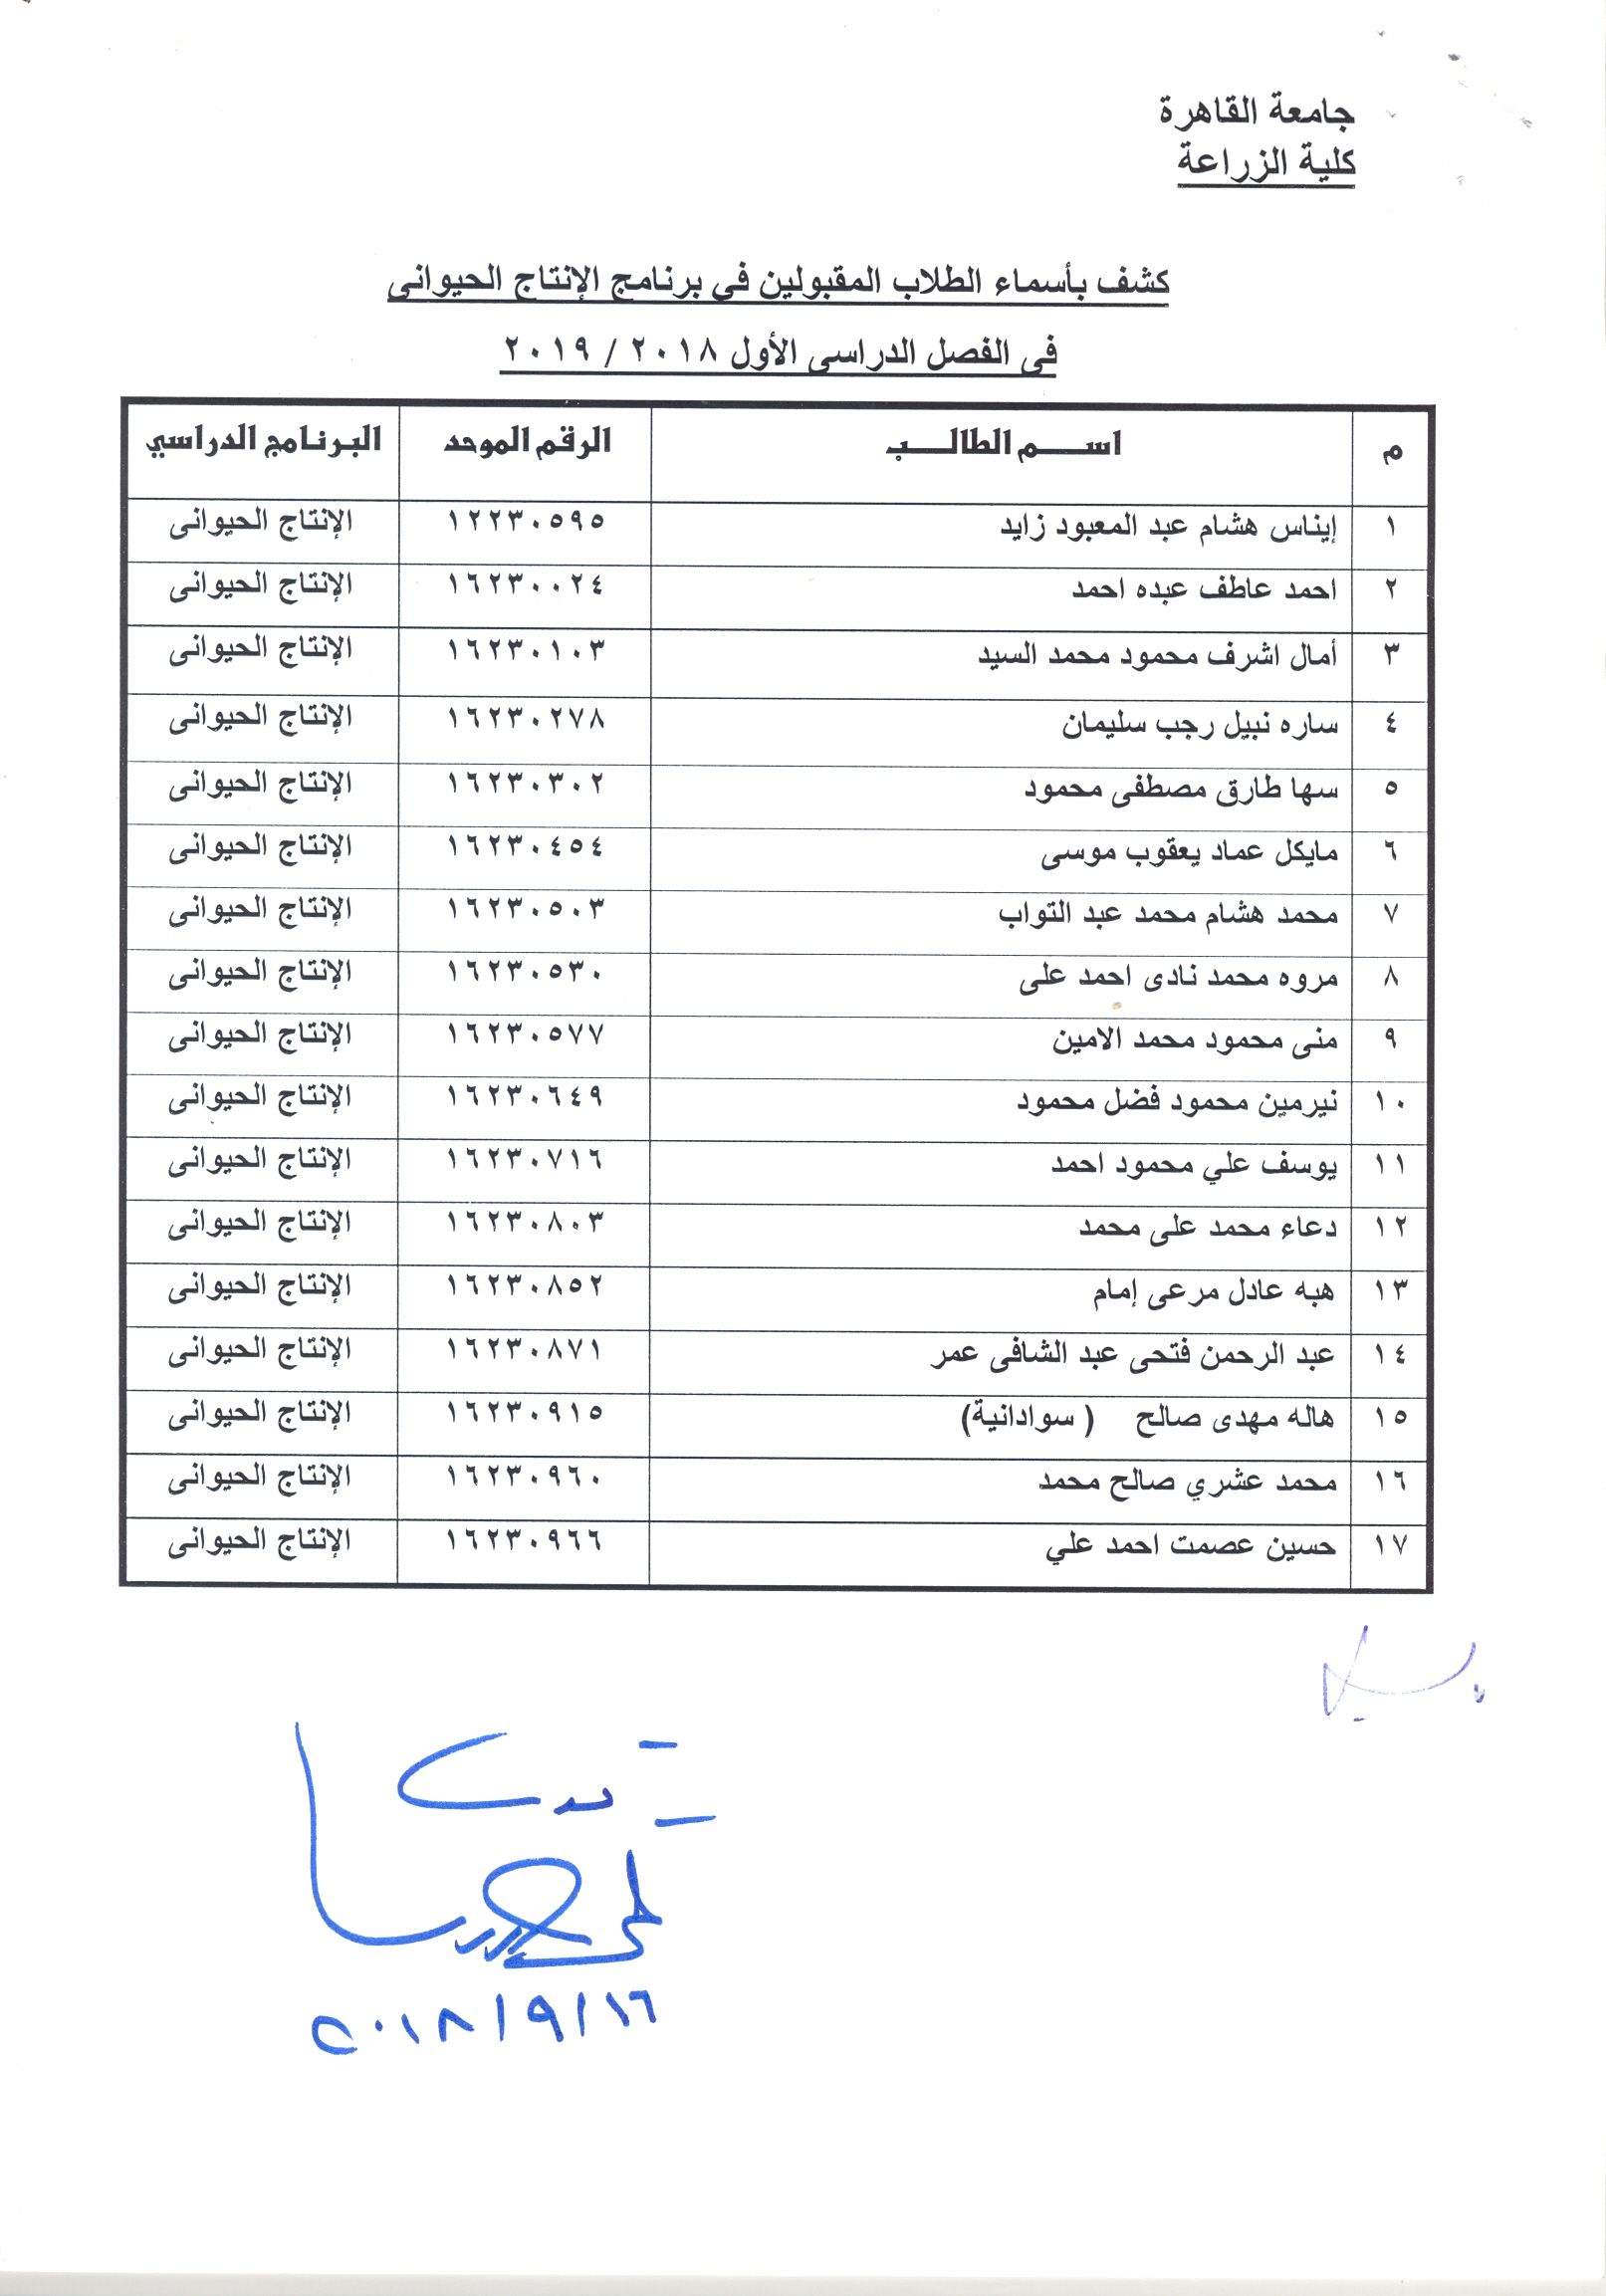 جامعة القاهرة
كلية الزراعة
كشف بأسماء الطلاب المقبولين في برنامج الإنتاج الحيوانى
فى الفصل الدراسى الأول ٢٠١٨ / ٢٠١٩
م اســـم الطالـــب الرقم الموحد البرنامج الدراسي
١ إيناس هشام عبد المعبود زايد ١٢٢٣٠٥٩٥ الإنتاج الحيوانى
٢ احمد عاطف عبده احمد ١٦٢٣٠٠٢٤ الإنتاج الحيوانى
٣ أمال اشرف محمود محمد السيد ١٦٢٣٠١٠٣ الإنتاج الحيوانى
٤ ساره نبيل رجب سليمان ١٦٢٣٠٢٧٨ الإنتاج الحيوانى
٥ سها طارق مصطفى محمود ١٦٢٣٠٣٠٢ الإنتاج الحيوانى
٦ مايكل عماد يعقوب موسى ١٦٢٣٠٤٥٤ الإنتاج الحيوانى
٧ محمد هشام محمد عبد التواب ١٦٢٣٠٥٠٣ الإنتاج الحيوانى
٨ مروه محمد نادى احمد على ١٦٢٣٠٥٣٠ الإنتاج الحيوانى
٩ منى محمود محمد الامين ١٦٢٣٠٥٧٧ الإنتاج الحيوانى
١٠ نيرمين محمود فضل محمود ١٦٢٣٠٦٤٩ الإنتاج الحيوانى
١١ يوسف علي محمود احمد ١٦٢٣٠٧١٦ الإنتاج الحيوانى
١٢ دعاء محمد على محمد ١٦٢٣٠٨٠٣ الإنتاج الحيوانى
١٣ هبه عادل مرعى إمام ١٦٢٣٠٨٥٢ الإنتاج الحيوانى
١٤ عبد الرحمن فتحى عبد الشافى عمر ١٦٢٣٠٨٧١ الإنتاج الحيوانى
١٥ هاله مهدى صالح ( سوادانية) ١٦٢٣٠٩١٥ الإنتاج الحيوانى
١٦ محمد عشري صالح محمد ١٦٢٣٠٩٦٠ الإنتاج الحيوانى
١٧ حسين عصمت احمد علي ١٦٢٣٠٩٦٦ الإنتاج الحيوانى
٢٠١٨/٩/١٦